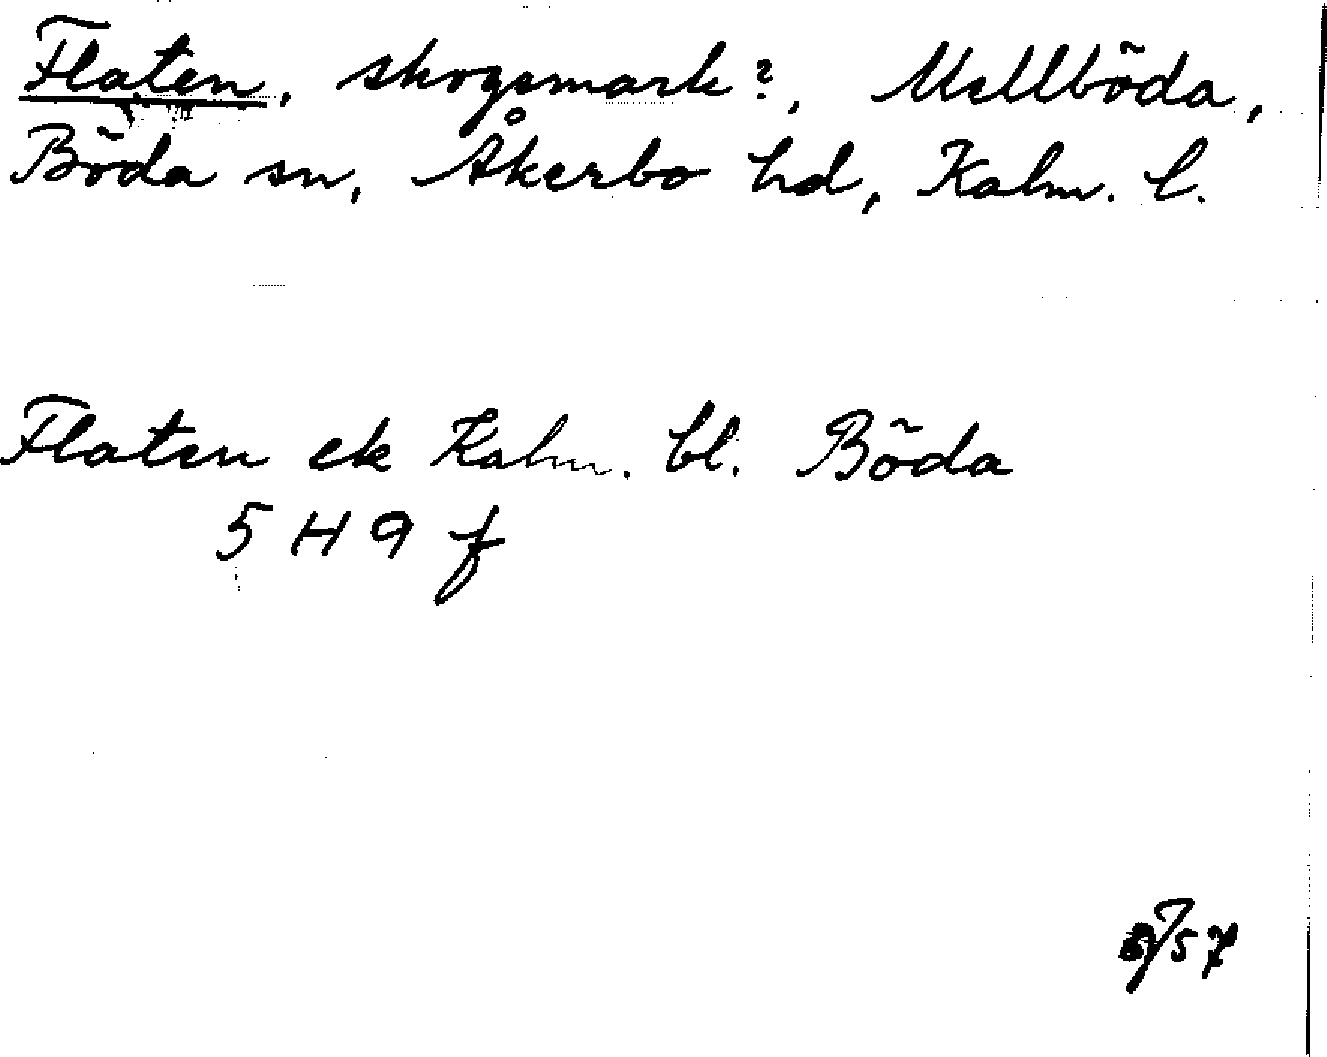 Flaten, skogsmark?, Mellböda,
Böda sn, Åkerbo hd, Kalm. l.
Flaten ek Kalm. bl. Böda
5 H 9 f